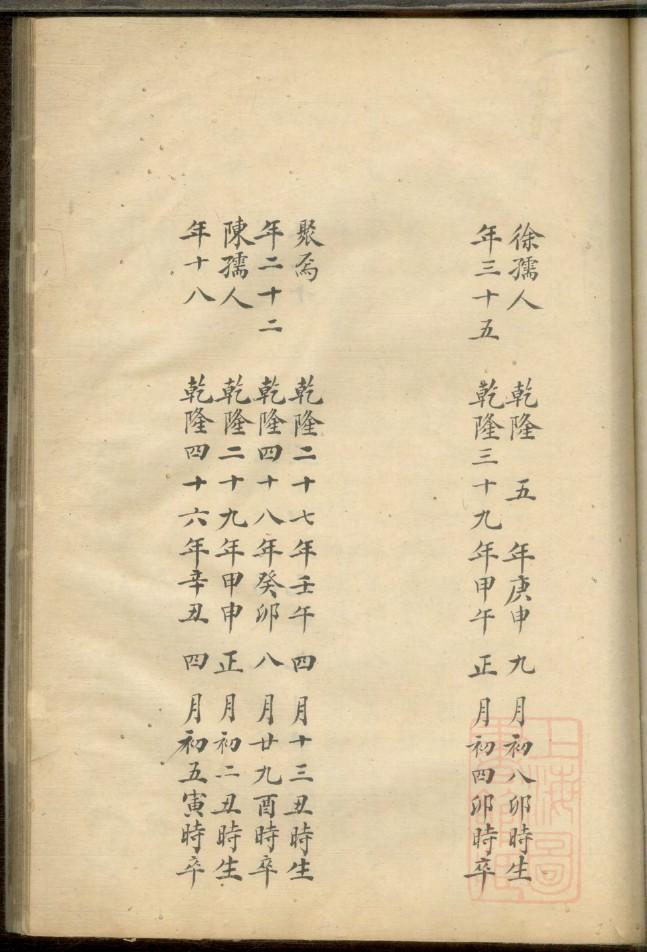 徐孺人 乾隆 五 年庚申 九 月初八卯時生
年三十五 乾隆三十九年甲午 正 月初四卯時卒
聚奎 乾隆二十七年壬午 四 月十三丑時生
年二十二 乾隆四十八年癸卯 八 月廿九酉時卒
陳孺人 乾隆二十九年甲申 正 月初二丑時生
年十八 乾隆四十六年辛丑 四 月初五寅時卒
上海圖
書館藏